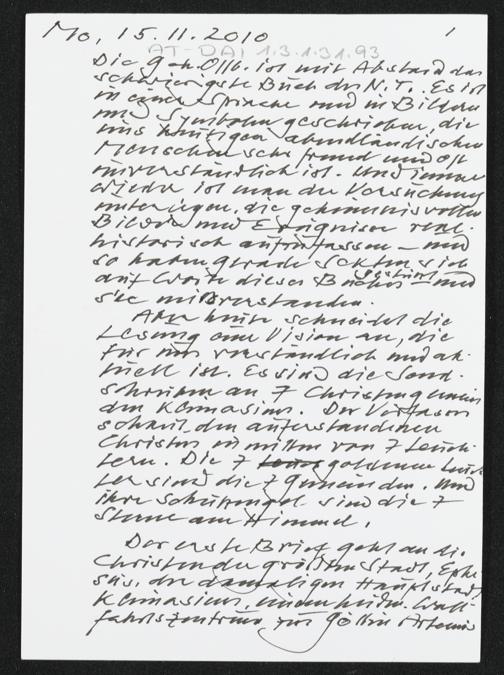 Mo, 15.11.2010 1
AT-DAI 1.3.1.31.93
Die geh. Offb. ist mit Abstand das
schwierigste Buch des N.T.. Es ist
in einer Sprache und in Bildern
und Symbolen geschrieben, die
uns heutigen abendländischen
Menschen sehr fremd und oft
unverständlich ist. Und immer
wieder ist man der Versuchung
unterlegen, die geheimnisvollen
Bilder und Ereignisse real-
historisch aufzufassen – und
so haben gerade Sekten sich
auf Worte dieses Buches gestürzt – und
sie missverstanden.
Aber heute schneidet die
Lesung eine Vision an, die
für uns verständlich und ak-
tuell ist. Es sind die Send-
schreiben an 7 Christengemein
den Kleinasiens. Der Verfasser
schaut den auferstandenen
Christus inmitten von 7 Leuch-
tern. Die 7 goldenen Leuch
ter sind die 7 Gemeinden. Und
ihre Schutzengel sind die 7
Sterne am Himmel.
Der erste Brief geht an die
Christen der größten Stadt, Ephe
sus, der damaligen Hauptstadt
Kleinasiens, einem heidn. Wall-
fahrtszentrum zur Göttin Artemis